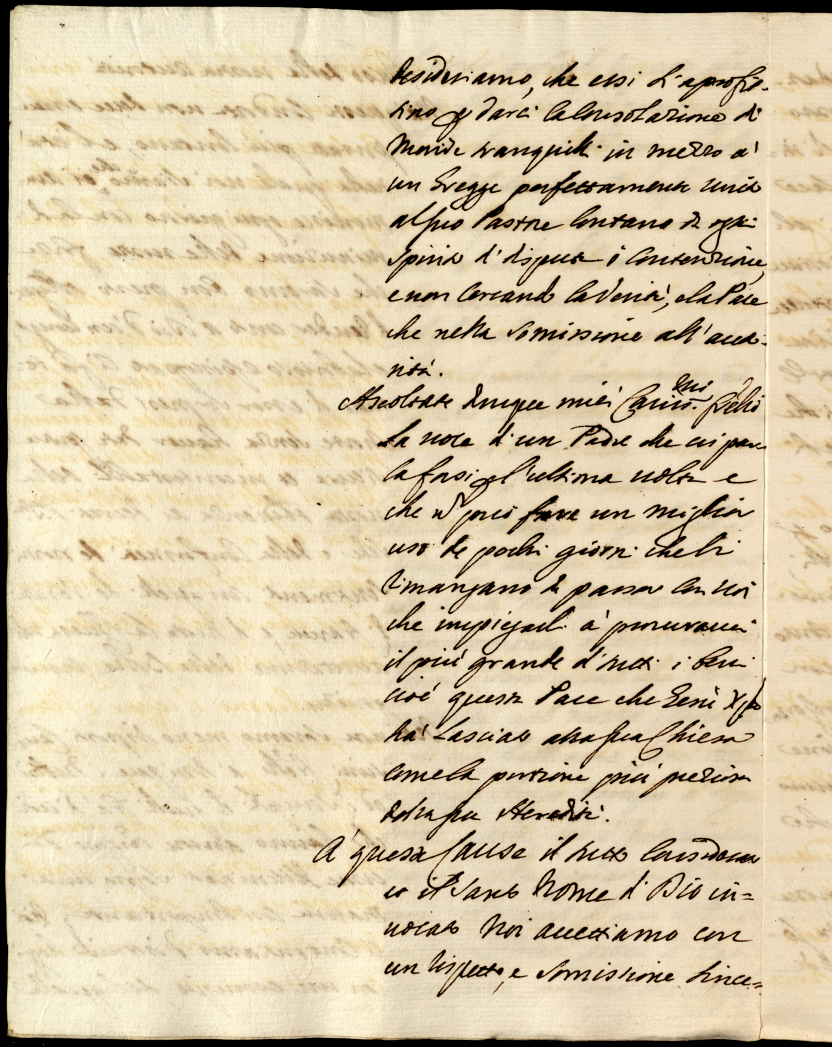 desideriamo, che essi s'aprofit-
tino p darci la Consolazione di
Morire tranquilli in mezzo a'
un Gregge perfettamente unito
al suo Pastore lontano da ogni
spirito di disputa e Contenzione,
e non Cercando la Verità, e la Pace
che nella Somissione all'auto-
rità.
Ascoltate dunque miei Cariss.mi figli
la voce d'un Padre che vi par
la forsi p l'ultima volta e
che n può fare un miglior
uso de pochi giorni che li
rimangano da passar con voi
che impiegarli à procuravi
il più grande di tutti i beni
cioè questa Pace che Gesù Xpto
hà lasciato alla sua Chiesa
come la porzione più preziosa
della sua Heredità.
A' queste Cause il tutto Considera
to il Santo Nome di Dio in=
vocato Noi accettiamo con
un rispetto, e Somissione since=